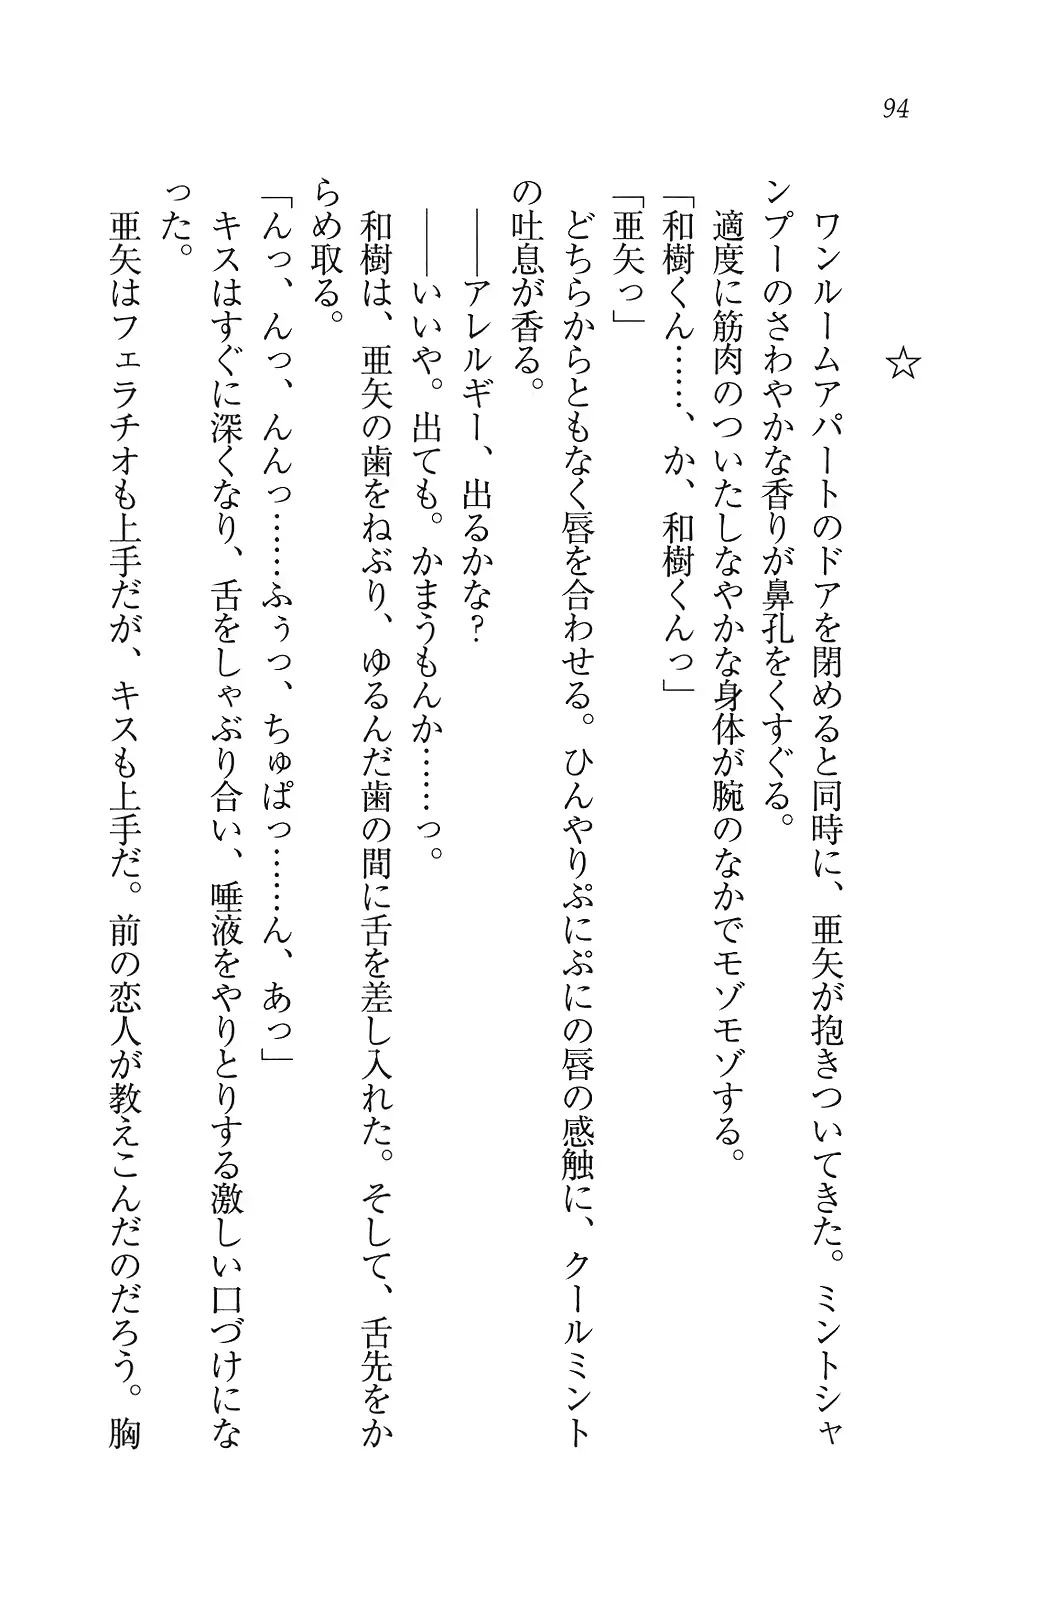 94
☆
ワンルームアパートのドアを閉めると同時に、亜矢が抱きついてきた。ミントシャ
ンプーのさわやかな香りが鼻孔をくすぐる。
適度に筋肉のついたしなやかな身体が腕のなかでモゾモゾする。
「和樹くん……、か、和樹くんっ」
「亜矢っ」
どちらからともなく唇を合わせる。ひんやりぷにぷにの唇の感触に、クールミント
の吐息が香る。
――アレルギー、出るかな?
――いいや。出ても。かまうもんか……っ。
和樹は、亜矢の歯をねぶり、ゆるんだ歯の間に舌を差し入れた。そして、舌先をか
らめ取る。
「んっ、んっ、んんっ……ふぅっ、ちゅぱっ……ん、あっ」
キスはすぐに深くなり、舌をしゃぶり合い、唾液をやりとりする激しい口づけにな
った。
亜矢はフェラチオも上手だが、キスも上手だ。前の恋人が教えこんだのだろう。胸